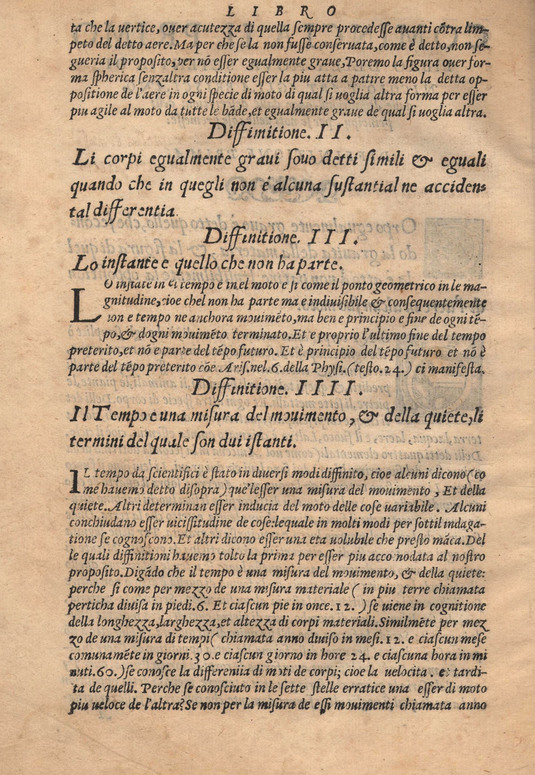 LIBRO
ta che la vertice, ouer acutezza di quella sempre procedesse auanti cõtra lim-
peto del detto aere. Ma per che se la non fusse conseruata, come è detto, non se-
gueria il proposito, per nõ esser egualmente graue, Poremo la figura ouer for-
ma spherica senzaltra conditione esser la piu atta a patire meno la detta op-
positione de l'aere in ogni specie di moto di qual si voglia altra forma per esser
piu agile al moto da tutte le bãde, et egualmente graue de qual si voglia altra.
Diffinitione. II.
Li corpi egualmente graui sono detti simili & eguali
quando che in quegli non è alcuna sustantial ne acciden-
tal differentia.
Diffinitione. III.
Lo instante e quello che non ha parte.
LO instāte in el tempo e in el moto e si come il ponto geometrico in le ma-
gnitudine, cioe chel non ha parte ma e indiuisibile & consequentemente
non e tempo ne anchora mouimẽto, ma ben e principio e fine de ogni tẽ-
po, & dogni mouimẽto terminato. Et e proprio l'ultimo fine del tempo
preterito, et nõ e parte del tẽpo futuro. Et è principio del tẽpo futuro et nõ è
parte del tẽpo preterito cõe Aris. nel. 6. della Physi. (testo. 24.) ci manifesta.
Diffinitione. IIII.
Il Tempo e una misura del mouimento, & della quiete, li
termini del quale son dui istanti.
IL tempo da scientifici è stato in diuersi modi diffinito, cioe alcuni dicono (co
me hauemo detto disopra) que'lesser una misura del mouimento, Et della
quiete. Altri determinan esser inducia del moto delle cose variabile. Alcuni
conchiudano esser uicissitudine de cose: lequale in molti modi per sottil indaga-
tione se cognoscono. Et altri dicono esser una eta volubile che presto mãca. Del
le quali diffinitioni hauemo tolto la prima per esser piu accomodata al nostro
proposito. Digãdo che il tempo è una misura del mouimento, & della quiete:
perche si come per mezzo de una misura materiale (in piu terre chiamata
perticha diuisa in piedi. 6. Et ciascun pie in once. 12.) se uiene in cognitione
della longhezza, larghezza, et altezza di corpi materiali. Similmẽte per mez
zo de una misura di tempi (chiamata anno diuiso in mesi. 12. e ciascun mese
comunamẽte in giorni. 30. e ciascun giorno in hore 24. e ciascuna hora in mi
nuti. 60.) se conosce la differentia di moti de corpi; cioe la velocita. e tardi-
ta de quelli. Perche se conosciuto in le sette stelle erratice una esser di moto
piu veloce de l'altra? Se non per la misura de essi mouimenti chiamata anno